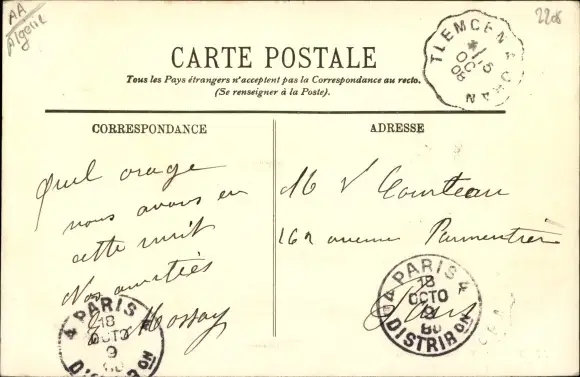 AA
Algerie
2206
CARTE POSTALE
Tous les Pays étrangers n'acceptent pas la Correspondance au recto.
(Se renseigner à la Poste).
TLEMCEN A ORAN
15
OCT
08
CORRESPONDANCE
Quel orage
nous avons eu
cette nuit
Nos amitiés
Mossay
4 PARIS 4
18
OCTO
9
DISTRIB ON
ADRESSE
M V Courteau
162 avenue Parmentier
Paris
4 PARIS 4
18
OCTO
9
DISTRIB ON